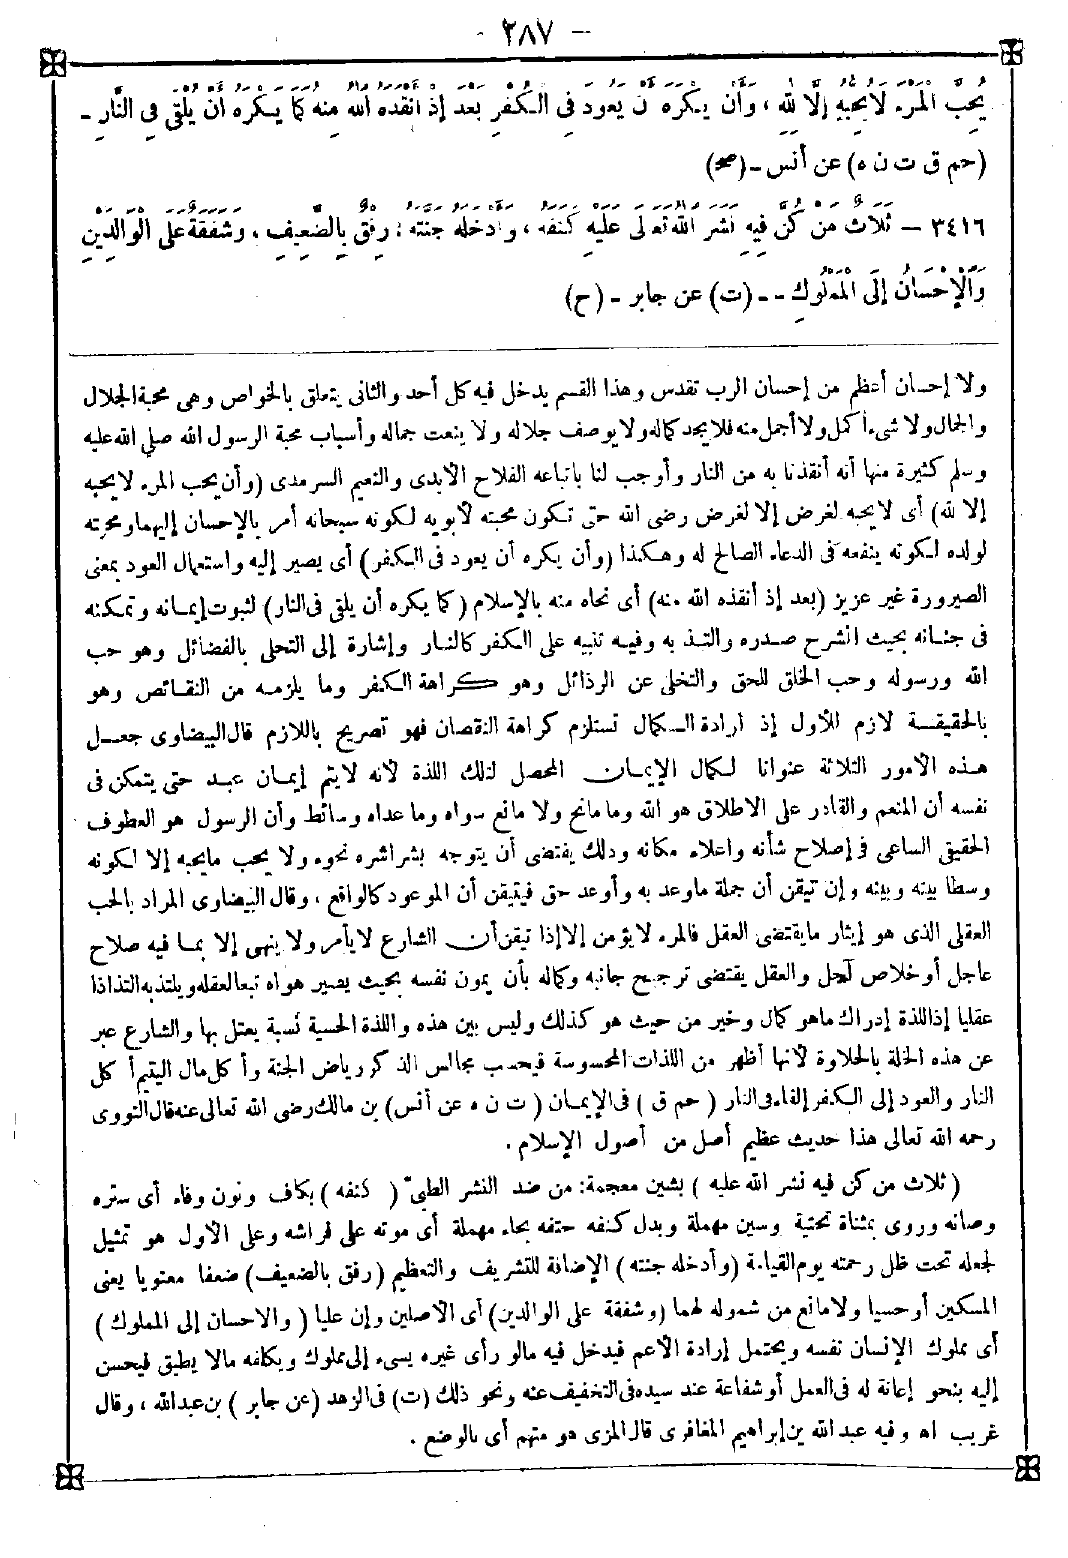 - ٢٨٧ -
يُحِبَّ المَرْءَ لَا يُحِبُّهُ إِلَّا لِلهِ ، وَأَنْ يَكْرَهَ أَنْ يَعُودَ فِى الْكُفْرِ بَعْدَ إِذْ أَنْقَذَهُ اللهُ مِنْهُ كَمَا يَكْرَهُ أَنْ يُلْقَى فِى النَّارِ -
(حم ق ت ن ه) عن أنس - (صح)
٣٤١٦ - ثَلَاثٌ مَنْ كُنَّ فِيهِ نَشَرَ اللهُ تَعَالَى عَلَيْهِ كَنَفَهُ ، وَأَدْخَلَهُ جَنَّتَهُ : رِفْقٌ بِالضَّعِيفِ ، وَشَفَقَةٌ عَلَى الْوَالِدَيْنِ
وَالْإِحْسَانُ إِلَى الْمَمْلُوكِ - - (ت) عن جابر - (ح)
ولا إحسان أعظم من إحسان الرب تقدس وهذا القسم يدخل فيه كل أحد والثانى يتعلق بالخواص وهى محبة الجلال
والجمال ولا شىء أكمل ولا أجمل منه فلا يحد كماله ولا يوصف جلاله ولا ينعت جماله وأسباب محبة الرسول الله صلى الله عليه
وسلم كثيرة منها أنه أنقذنا به من النار وأوجب لنا باتباعه الفلاح الأبدى والنعيم السرمدى (وأن يحب المرء لا يحبه
إلا لله) أى لا يحبه لغرض إلا لغرض رضى الله حتى تكون محبته لأبويه لكونه سبحانه أمر بالإحسان إليهما ومحبته
لولده لكونه ينفعه فى الدعاء الصالح له وهكذا (وأن يكره أن يعود فى الكفر) أى يصير إليه واستعمال العود بمعنى
الصيرورة غير عزيز (بعد إذ أنقذه الله منه) أى نجاه منه بالإسلام (كما يكره أن يلقى فى النار) لثبوت إيمانه وتمكنه
فى جنانه بحيث انشرح صدره والتذ به وفيه تنبيه على الكفر كالنار وإشارة إلى التحلى بالفضائل وهو حب
الله ورسوله وحب الخلق للحق والتخلى عن الرذائل وهو كراهة الكفر وما يلزمه من النقائص وهو
بالحقيقة لازم للأول إذ إرادة الكمال تستلزم كراهة النقصان فهو تصريح باللازم قال البيضاوى جعل
هذه الأمور الثلاثة عنوانا لكمال الإيمان المحصل لتلك اللذة لأنه لا يتم إيمان عبد حتى يتمكن فى
نفسه أن المنعم والقادر على الاطلاق هو الله وما مانح ولا مانع سواه وما عداه وسائط وأن الرسول هو العطوف
الحقيقى الساعى فى إصلاح شأنه واعلاء مكانه وذلك يقتضى أن يتوجه بشراشره نحوه ولا يحب ما يحبه إلا لكونه
وسطا بينه وبينه وإن تيقن أن جملة ما وعد به وأوعد حق فيتيقن أن الموعود كالواقع ، وقال البيضاوى المراد بالحب
العقلى الذى هو إيثار ما يقتضى العقل فالمرء لا يؤمن إلا إذا تيقن أن الشارع لا يأمر ولا ينهى إلا بما فيه صلاح
عاجل أو خلاص آجل والعقل يقتضى ترجيح جانبه وكماله بأن يمون نفسه بحيث يصير هواه تبعا لعقله ويلتذ به التذاذا
عقليا إذ اللذة إدراك ما هو كمال وخير من حيث هو كذلك وليس بين هذه واللذة الحسية نسبة يعتل بها والشارع عبر
عن هذه الخلة بالحلاوة لأنها أظهر من اللذات المحسوسة فيحسب مجالس الذكر رياض الجنة وأكل مال اليتيم أكل
النار والعود إلى الكفر إلقاء فى النار ( حم ق ) فى الإيمان ( ت ن ه عن أنس) بن مالك رضى الله تعالى عنه قال النووى
رحمه الله تعالى هذا حديث عظيم أصل من أصول الإسلام .
( ثلاث من كن فيه نشر الله عليه ) بشين معجمة : من ضد النشر الطى ( كنفه ) بكاف ونون وفاء أى ستره
وصانه وروى بمثناة تحتية وسين مهملة وبدل كنفه حتفه بحاء مهملة أى موته على فراشه وعلى الأول هو تمثيل
لجعله تحت ظل رحمته يوم القيامة (وأدخله جنته) الإضافة للتشريف والتعظيم (رفق بالضعيف) ضعفا معنويا يعنى
المسكين أو حسيا ولا مانع من شموله لهما (وشفقة على الوالدين) أى الأصلين وإن عليا ( والاحسان إلى المملوك )
أى مملوك الإنسان نفسه ويحتمل إرادة الأعم فيدخل فيه ما لو رأى غيره يسىء إلى مملوك ويكلفه مالا يطيق فيحسن
إليه بنحو إعانة له فى العمل أو شفاعة عند سيده فى التخفيف عنه ونحو ذلك (ت) فى الزهد (عن جابر ) بن عبد الله ، وقال
غريب اه وفيه عبد الله بن إبراهيم المغافرى قال المزى هو متهم أى بالوضع .